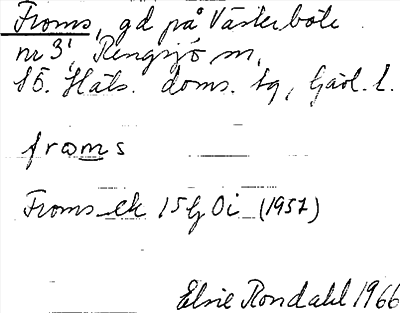 Froms, gd på Västerböle
nr 3¹, Rengsjö sn,
SÖ. Häls. doms. tg, Gävl. l.
froms
Froms ek 15G 0i (1957)
Elsie Rondahl 1966